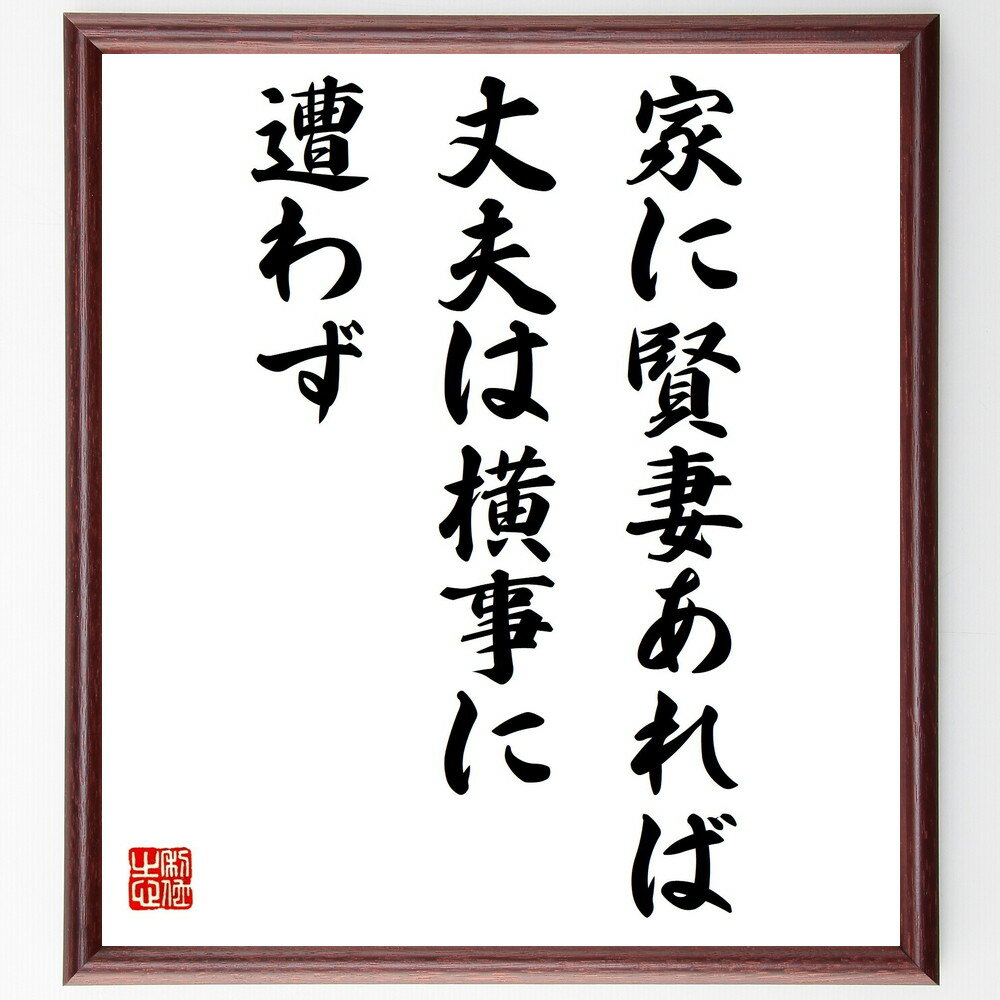 家に賢妻あれば
丈夫は横事に
遭わず